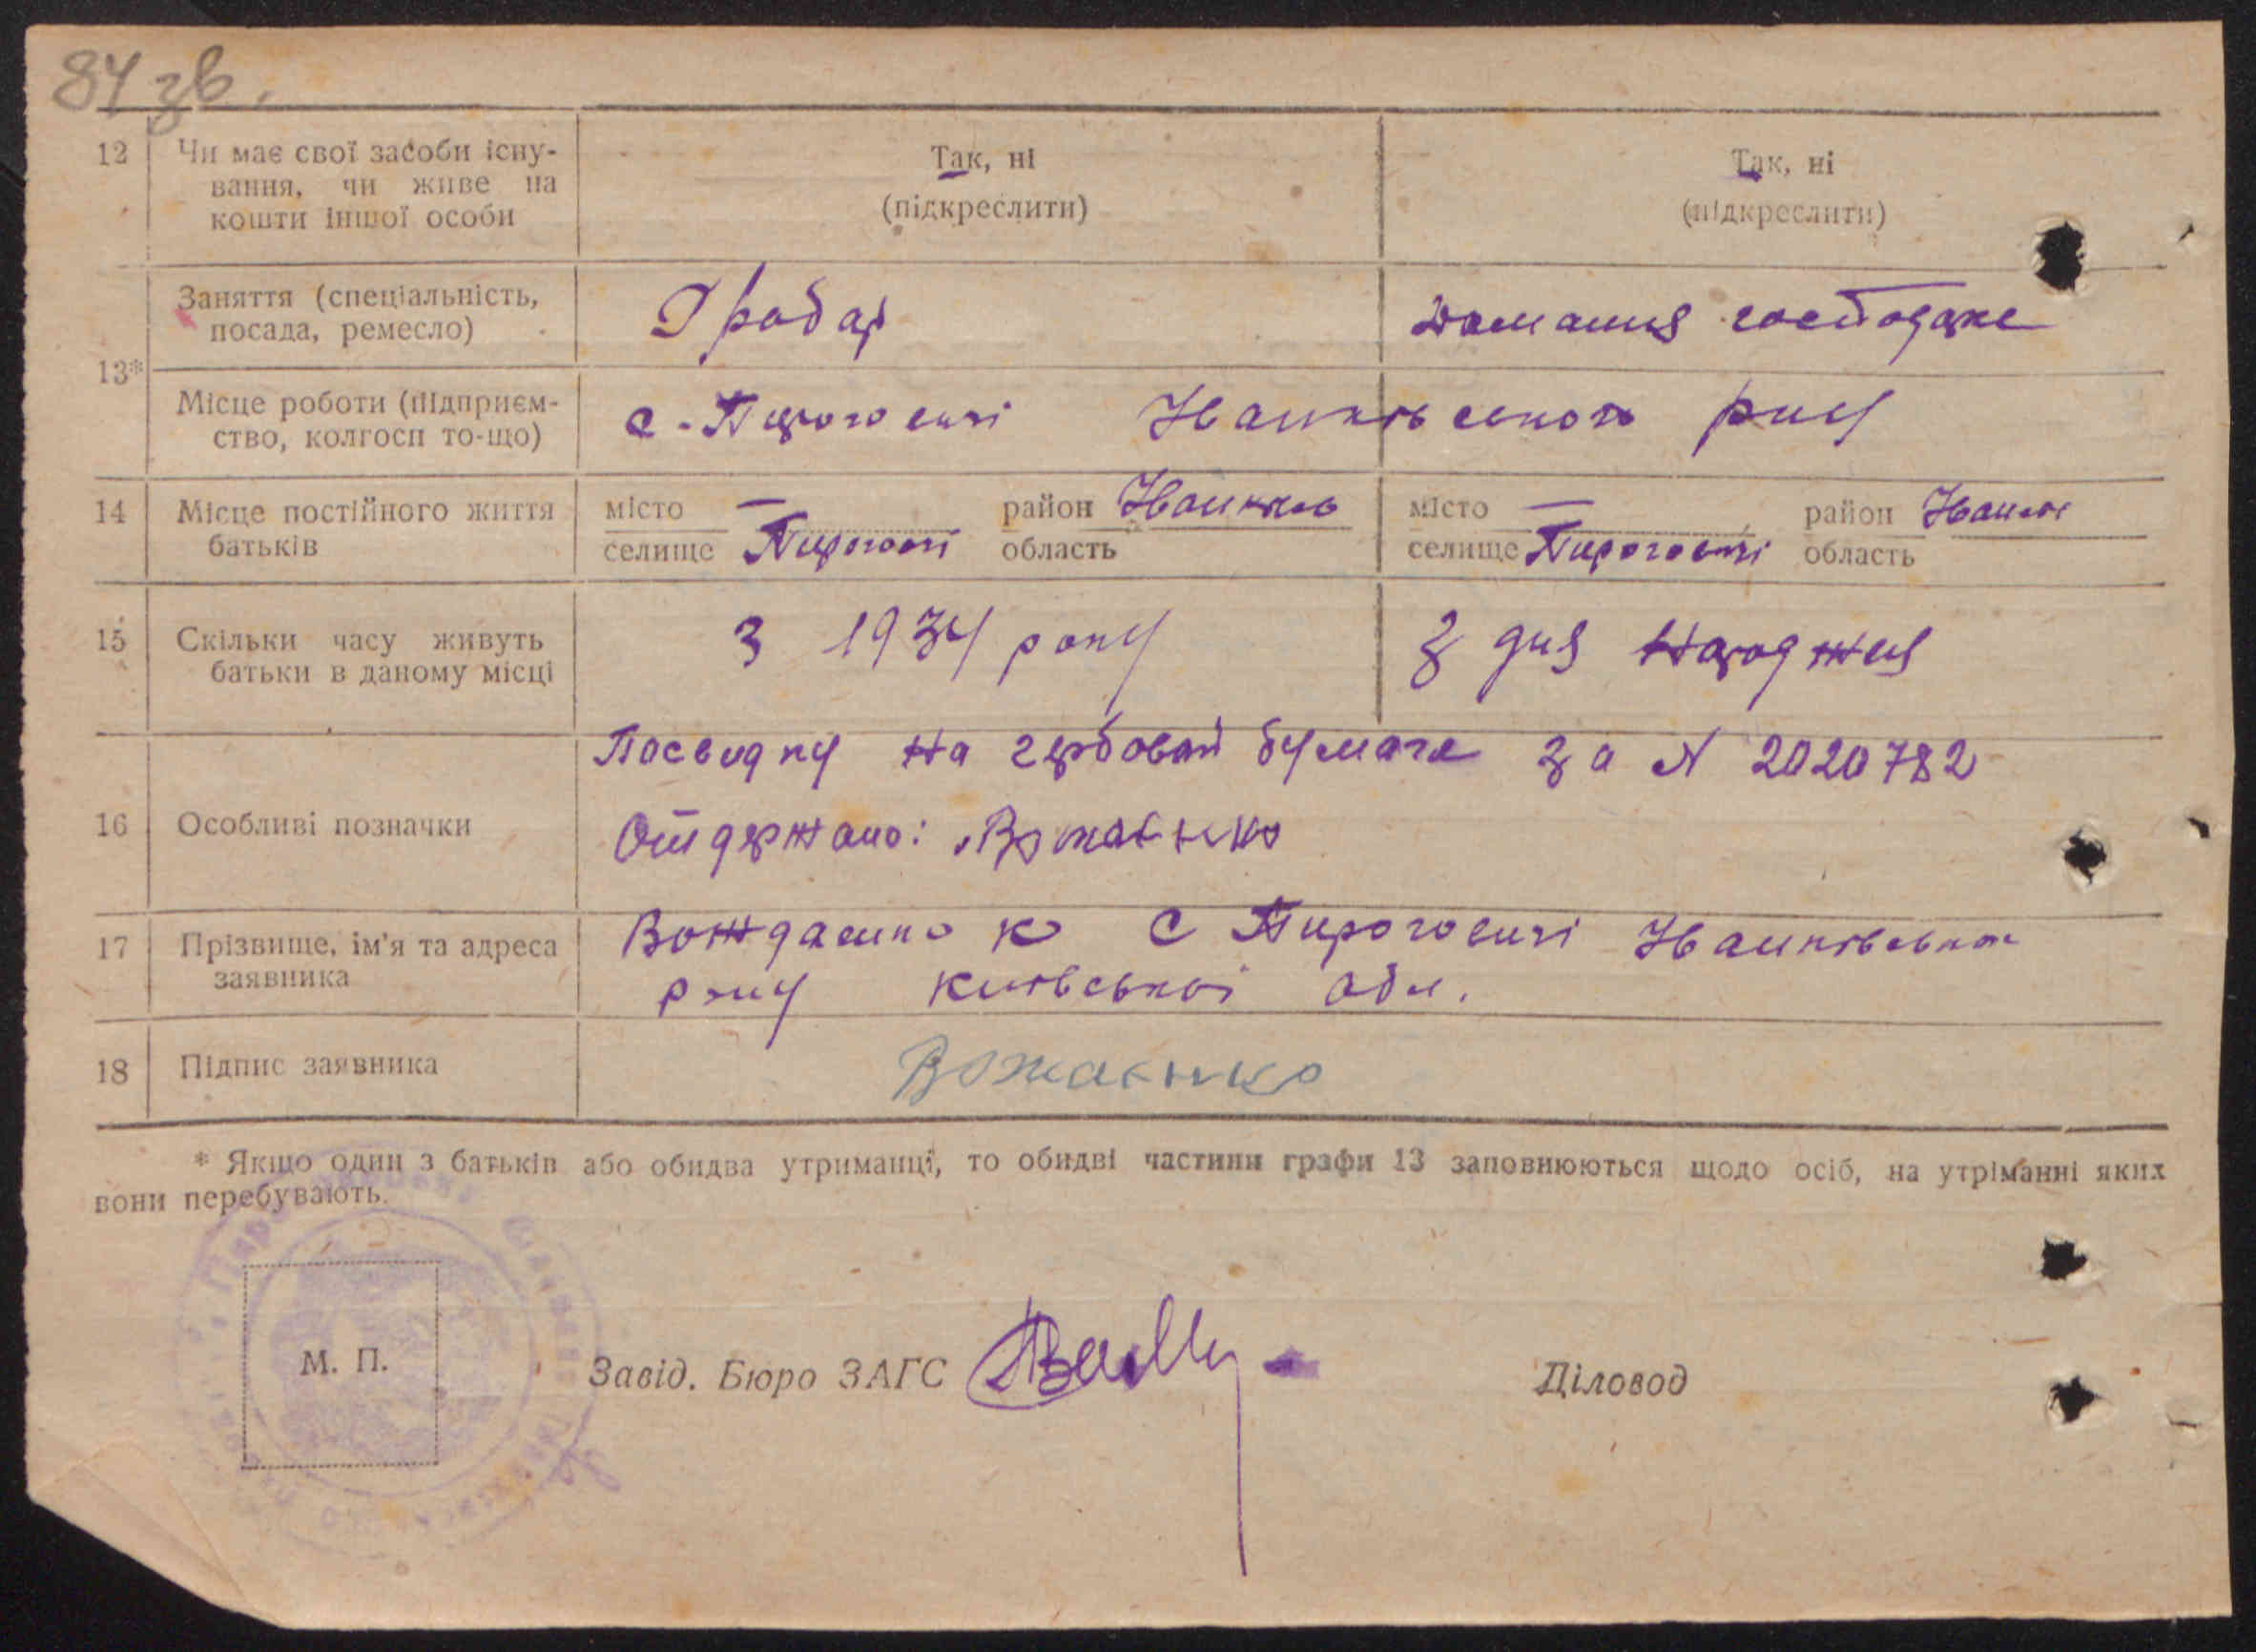 84 зв.
12 Чи має свої засоби існу-
вання, чи живе на
кошти іншої особи
Так, ні
(підкреслити)
Так, ні
(підкреслити)
13*
Заняття (спеціальність,
посада, ремесло)
Грабар
домашня господарк
Місце роботи (підприєм-
ство, колгосп то-що)
с. Пироговичі Іванківського р-ну
14 Місце постійного життя
батьків
місто —
селище Пироговичі
район Іванків
область
місто —
селище Пироговичі
район Іванків
область
15 Скільки часу живуть
батьки в даному місці
З 1934 року
З дня народження
16 Особливі позначки
Посвідку на гербовай бумаге за N 2020782
Отдержано: Вожаенко
17 Прізвище, ім'я та адреса
заявника
Вождаенко К с Пироговичі Іванківського
р-ну Київської обл.
18 Підпис заявника
Вожаенко
* Якщо один з батьків або обидва утриманці, то обидві частини графи 13 заповнюються щодо осіб, на утріманні яких
вони перебувають.
М. П.
Завід. Бюро ЗАГС
Діловод